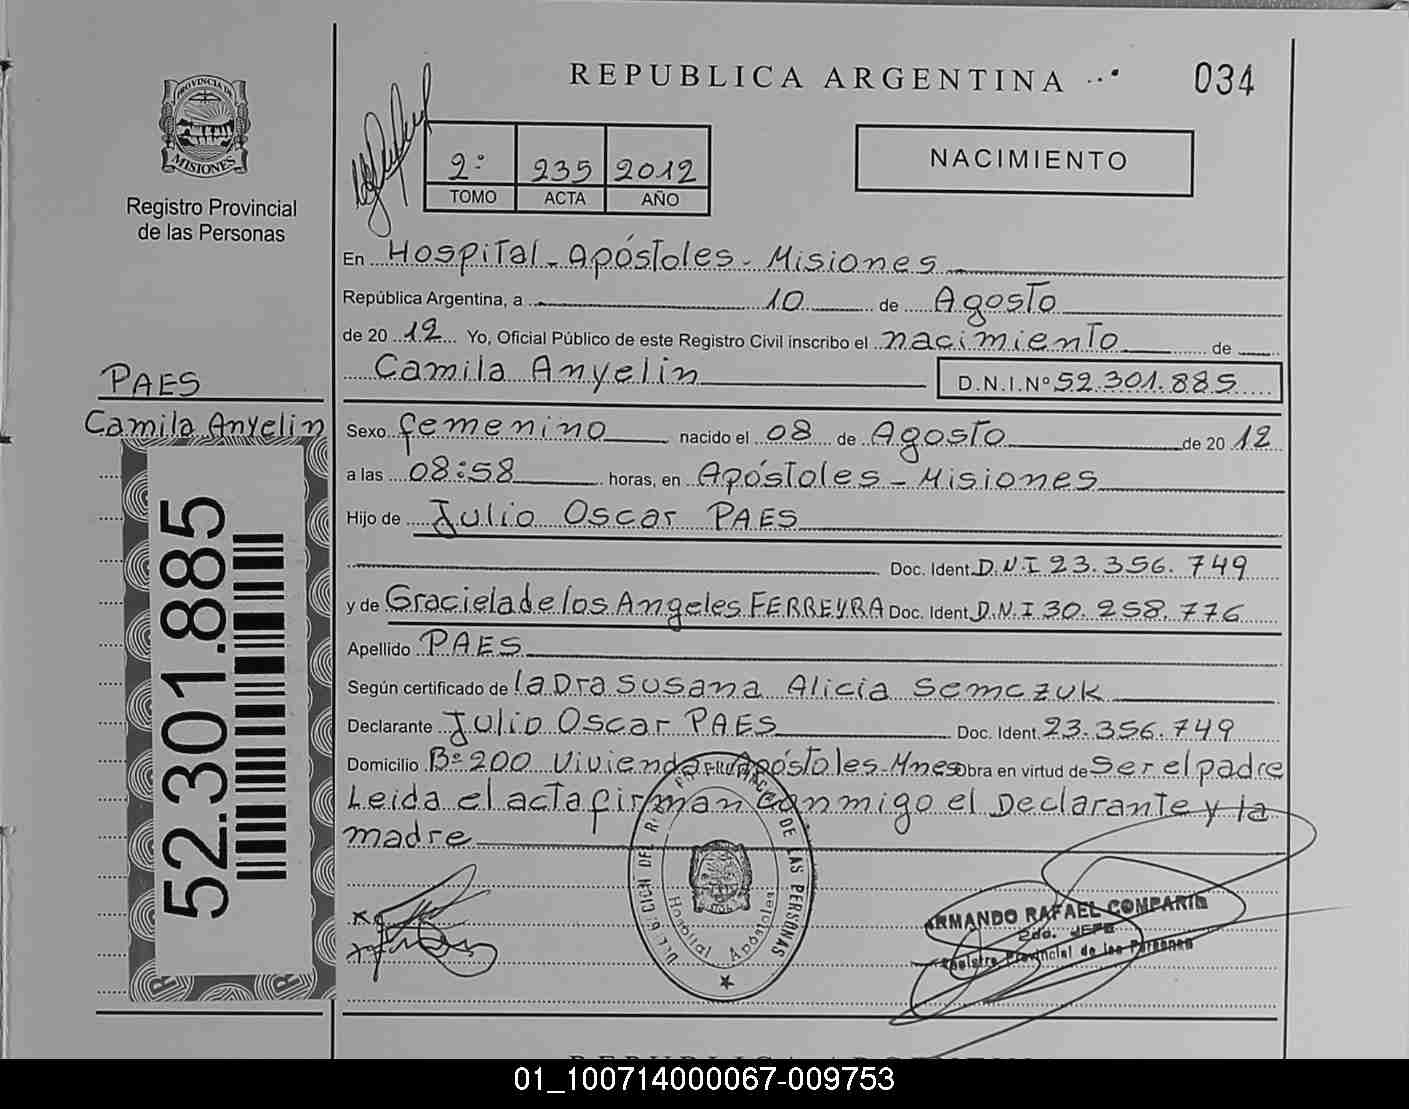 REPUBLICA ARGENTINA
034
PROVINCIA DE
MISIONES
Registro Provincial
de las Personas
2º 235 2012
TOMO ACTA AÑO
NACIMIENTO
En Hospital - Apóstoles - Misiones
República Argentina, a 10 de Agosto
de 20 12 Yo, Oficial Público de este Registro Civil inscribo el nacimiento de
Camila Anyelin D.N.I.Nº 52.301.885
PAES
Camila Anyelin
52.301.885
Sexo femenino nacido el 08 de Agosto de 20 12
a las 08:58 horas, en Apóstoles - Misiones
Hijo de Julio Oscar PAES
Doc. Ident. D.N.I 23.356.749
y de Graciela de los Angeles FERREYRA Doc. Ident. D.N.I 30.258.776
Apellido PAES
Según certificado de la Dra Susana Alicia Semczuk
Declarante Julio Oscar PAES Doc. Ident. 23.356.749
Domicilio Bº 200 Vivienda Apóstoles. Mnes Obra en virtud de Ser el padre
Leida el acta firman conmigo el Declarante y la
madre
DE LAS PERSONAS
Hospital Apóstoles
ARMANDO RAFAEL COMPARIN
2do. JEFE
Registro Provincial de las Personas
REPUBLICA ARGENTINA
01_100714000067-009753